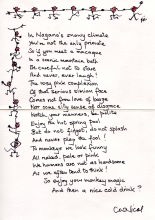 In Nagano's snowy climate
You're not the only primate
So if you meet a macaque
In a scenic mountain bath
Be careful not to stare
And never, ever laugh!
The very pink complexion
Of that serious simian face
Comes not from love of booze
Nor some silly sense of disgrace
Watch, your manners, be polite
Enjoy the hot spring pool
But do not fidget, do not splash
And never play the fool!
To monkeys we look funny
All naked, pale or pink
We humans are not as handsome
As we often tend to think!
So enjoy your monkey magic
And then a nice cold drink?